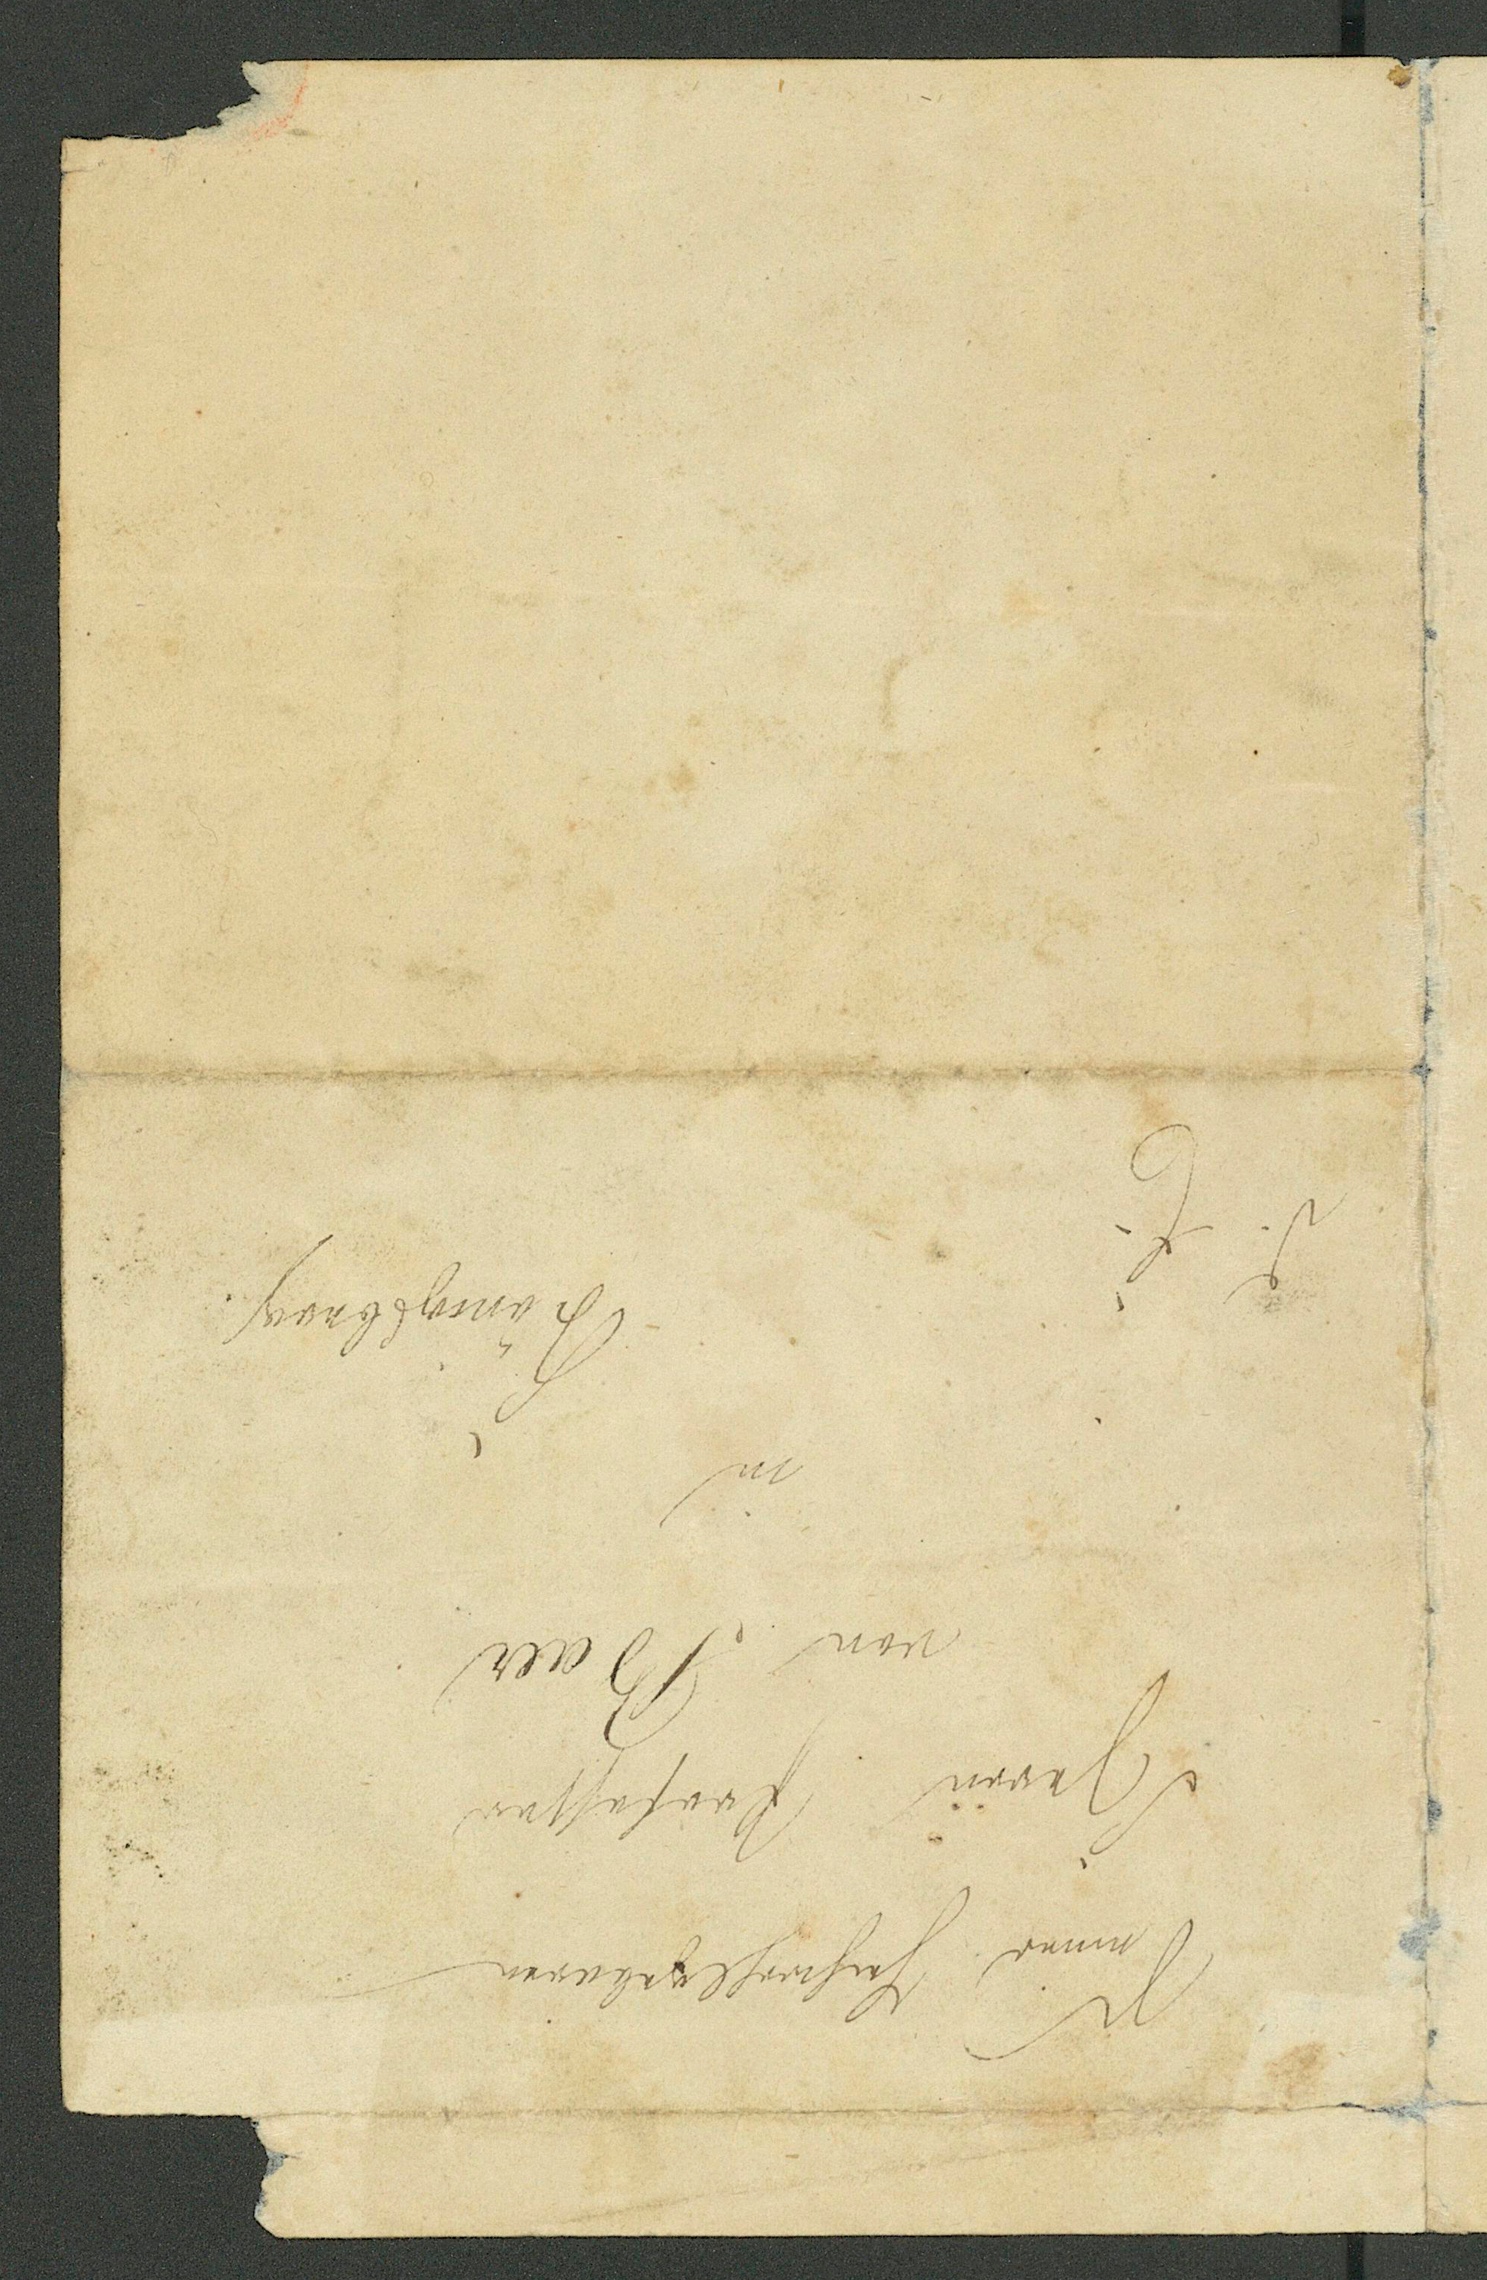 Seiner Hochwohlgeboren
Herrn Professor
von Baer
in
Königsberg.